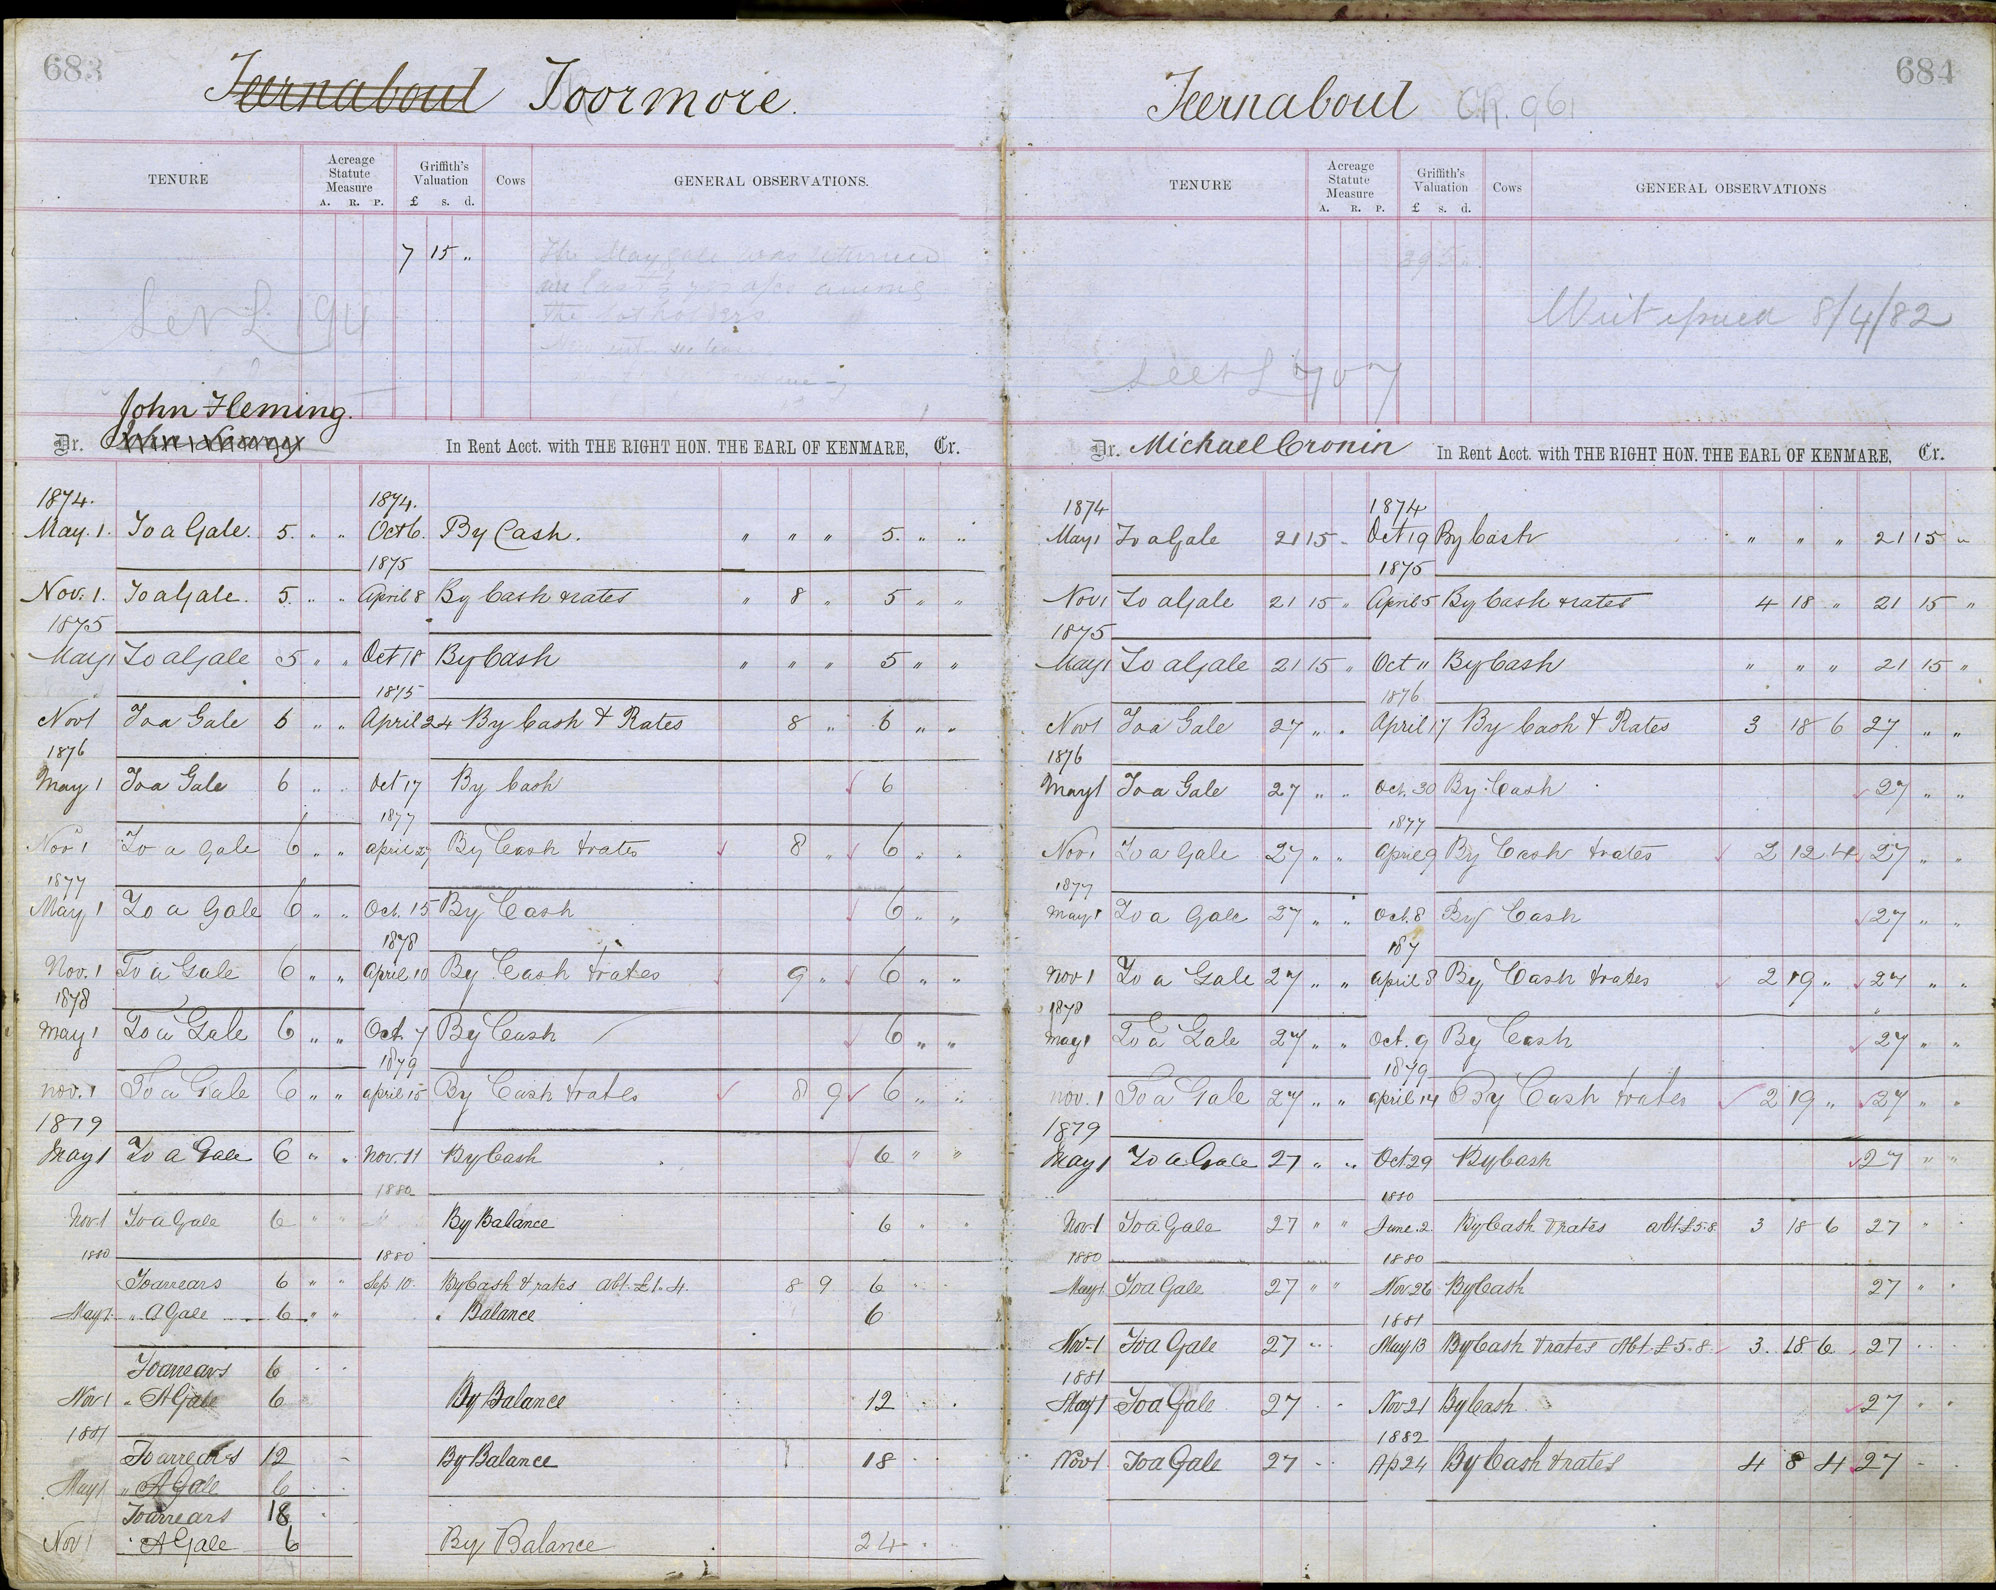 683
Teernaboul Toormore.
TENURE
Acreage Statute Measure
A. R. P.
Griffith's Valuation
£ s. d.
Cows
GENERAL OBSERVATIONS.
7 15 "
The May gale was returned
the lotholders
John Fleming.
Dr. In Rent Acct. with THE RIGHT HON. THE EARL OF KENMARE, Cr.
1874. 1874.
May. 1. To a Gale. 5. " " Oct 6. By Cash. " " " 5. " "
1875
Nov. 1. To a Gale. 5. " " April 8 By Cash & rates " 8 " 5 " "
1875
May 1 To a Gale 5 " " Oct 18 By Cash " " " 5 " "
1875
Nov 1 To a Gale 6 " " April 24 By Cash & Rates 8 " 6 " "
1876
May 1 To a Gale 6 " " Oct 17 By Cash 6
1877
Nov 1 To a Gale 6 " " April 27 By Cash & rates 8 " 6 " "
1877
May 1 To a Gale 6 " " Oct. 15 By Cash 6 " "
1878
Nov. 1 To a Gale 6 " " April 10 By Cash & rates 9 " 6 " "
1878
May 1 To a Gale 6 " " Oct. 7 By Cash 6 " "
1879
Nov. 1 To a Gale 6 " " April 15 By Cash & rates 8 9 6 " "
1879
May 1 To a Gale 6 " " Nov. 11 By Cash 6 " "
1880
Nov 1 To a Gale 6 " " By Balance 6 " "
1880 1880
To arrears 6 " " Sep 10 By Cash & rates abt. £1.4. 8 9 6
May 1 " A Gale 6 " " " Balance 6
To arrears 6
Nov 1 " A Gale 6 By Balance 12
1881
To arrears 12 By Balance 18
May 1 " A Gale 6
To arrears 18
Nov 1 " A Gale 6 By Balance 24
684
Teernaboul CR. 961
TENURE
Acreage Statute Measure
A. R. P.
Griffith's Valuation
£ s. d.
Cows
GENERAL OBSERVATIONS
39 5 "
Writ issued 8/4/82
See L 707
Dr. Michael Cronin In Rent Acct. with THE RIGHT HON. THE EARL OF KENMARE, Cr.
1874 1874
May 1 To a Gale 21 15 " Oct 19 By Cash " " " 21 15 "
1875
Nov 1 To a Gale 21 15 " April 5 By Cash & rates 4 18 " 21 15 "
1875
May 1 To a Gale 21 15 " Oct 11 By Cash " " " 21 15 "
1876
Nov 1 To a Gale 27 " " April 17 By Cash & Rates 3 18 6 27 " "
1876
May 1 To a Gale 27 " " Oct. 30 By Cash 27 " "
1877
Nov 1 To a Gale 27 " " April 9 By Cash & rates 2 12 4 27 " "
1877
May 1 To a Gale 27 " " Oct. 8 By Cash 27 " "
187
Nov 1 To a Gale 27 " " April 8 By Cash & rates 2 19 " 27 " "
1878
May 1 To a Gale 27 " " Oct. 9 By Cash 27 " "
1879
Nov. 1 To a Gale 27 " " April 14 By Cash & rates 2 19 " 27 " "
1879
May 1 To a Gale 27 " " Oct 29 By Cash 27 " "
1880
Nov 1 To a Gale 27 " " June 2 By Cash & rates abt. £5.8 3 18 6 27 "
1880 1880
May 1 To a Gale 27 " " Nov 26 By Cash 27 "
1881
Nov 1 To a Gale 27 " " May 13 By Cash & rates Abt. £5.8. 3. 18 6 27
1881
May 1 To a Gale 27 Nov 21 By Cash 27 "
1882
Nov 1 To a Gale 27 Ap 24 By Cash & rates 4 8 4 27